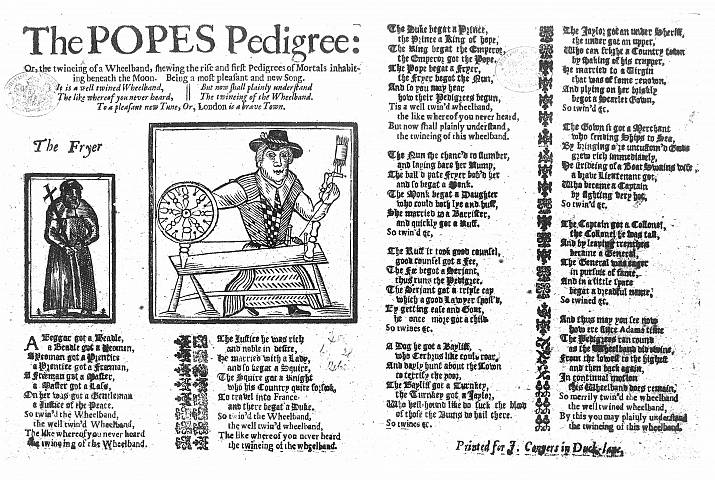 The POPES Pedigree:
Or, the twineing of a Wheelband, shewing the rise and first Pedigrees of Mortals inhabit-
ing beneath the Moon. Being a most pleasant and new Song.
It is a well twined Wheelband,
The like whereof you never heard,
But now shall plainly understand
The twineing of the Wheelband.
To a pleasant new Tune, Or, London is a brave Town.
The Fryer
A Beggar got a Beadle,
a Beadle got a Yeoman,
A Yeoman got a Prentice
a Prentice got a Freeman,
A Freeman got a Master,
a Master got a Lase,
On her was got a Gentleman
a Justice of the Peace.
So twin'd the Wheelband,
the well twin'd Wheelband,
The like whereof you never heard
the twineing of the Wheelband.
The Justice he was rich
and noble in desire,
He married with a Lady,
and so begat a Squire,
The Squire got a Knight
who his Country quite forsook,
To travel into France
and there begat a Duke.
So twin'd the Wheelband,
the well twin'd wheelband,
The like whereof you never heard
the twineing of the wheelband.
The Duke begat a Prince,
the Prince a King of hope,
The King begat the Emperor,
the Emperor got the Pope.
The Pope begat a Fryer,
the Fryer begot the Nun,
And so you may hear
how their Pedigrees begun,
Tis a well twin'd wheelband,
the like whereof you never heard,
But now shall plainly understand,
the twineing of this wheelband.
The Nun she chanc'd to slumber,
and laying bare her Rump,
The bald pate Fryer bob'd her
and so begat a Monk.
The Monk begat a Daughter
who could both lye and huff,
She married to a Barrister,
and quickly got a Ruff.
So twin'd &c,
The Ruff it took good counsel,
good counsel got a Fee,
The Fee begot a Serjant,
thus runs the Pedigree.
The Serjant got a triple cap
which a good Lawyer spoil'd,
By getting ease and Gout,
he once more got a child
So twines &c.
A Dog he got a Bayliff,
who Cerbrus like could roar,
And dayly hunt about the Town
to terrify the poor,
The Bayliff got a Turnkey,
the Turnkey got a Jaylor,
Who hell-hound like do suck the blood
of those the Bums do hail there.
So twines &c.
The Jaylor got an under Sheriff,
the under got an upper,
Who can fright a Country town
by shaking of his crupper,
He married to a Virgin
that was of some renown,
And plying on her briskly
begot a Scarlet Gown,
So twin'd &c.
The Gown it got a Merchant
who sending Ships to Sea,
By bringing o're uncustom'd Goods
grew rich immediately,
He striding of a Boat Swains wife
a brave Lieutenant got,
Who became a Captain
by fighting very hot,
So twin'd &c.
The Captain got a Collonel,
the Collonel he was tall,
And by leaping trenches
became a General,
The General was eager
in pursute of fame,
And in a little space
begat a dreadful name,
So twined &c.
And thus may you see how
how ere since Adams time
The Pedigrees ran round
as the Wheelband did twine,
From the lowest to the highest
and then back again,
In continual motion
this Wheelband does remain,
So merrily twin'd the wheelband
the well twined wheelband,
By this you may plainly understand
the twineing of this wheelband.
Printed for J. Conyers in Duck-lane,